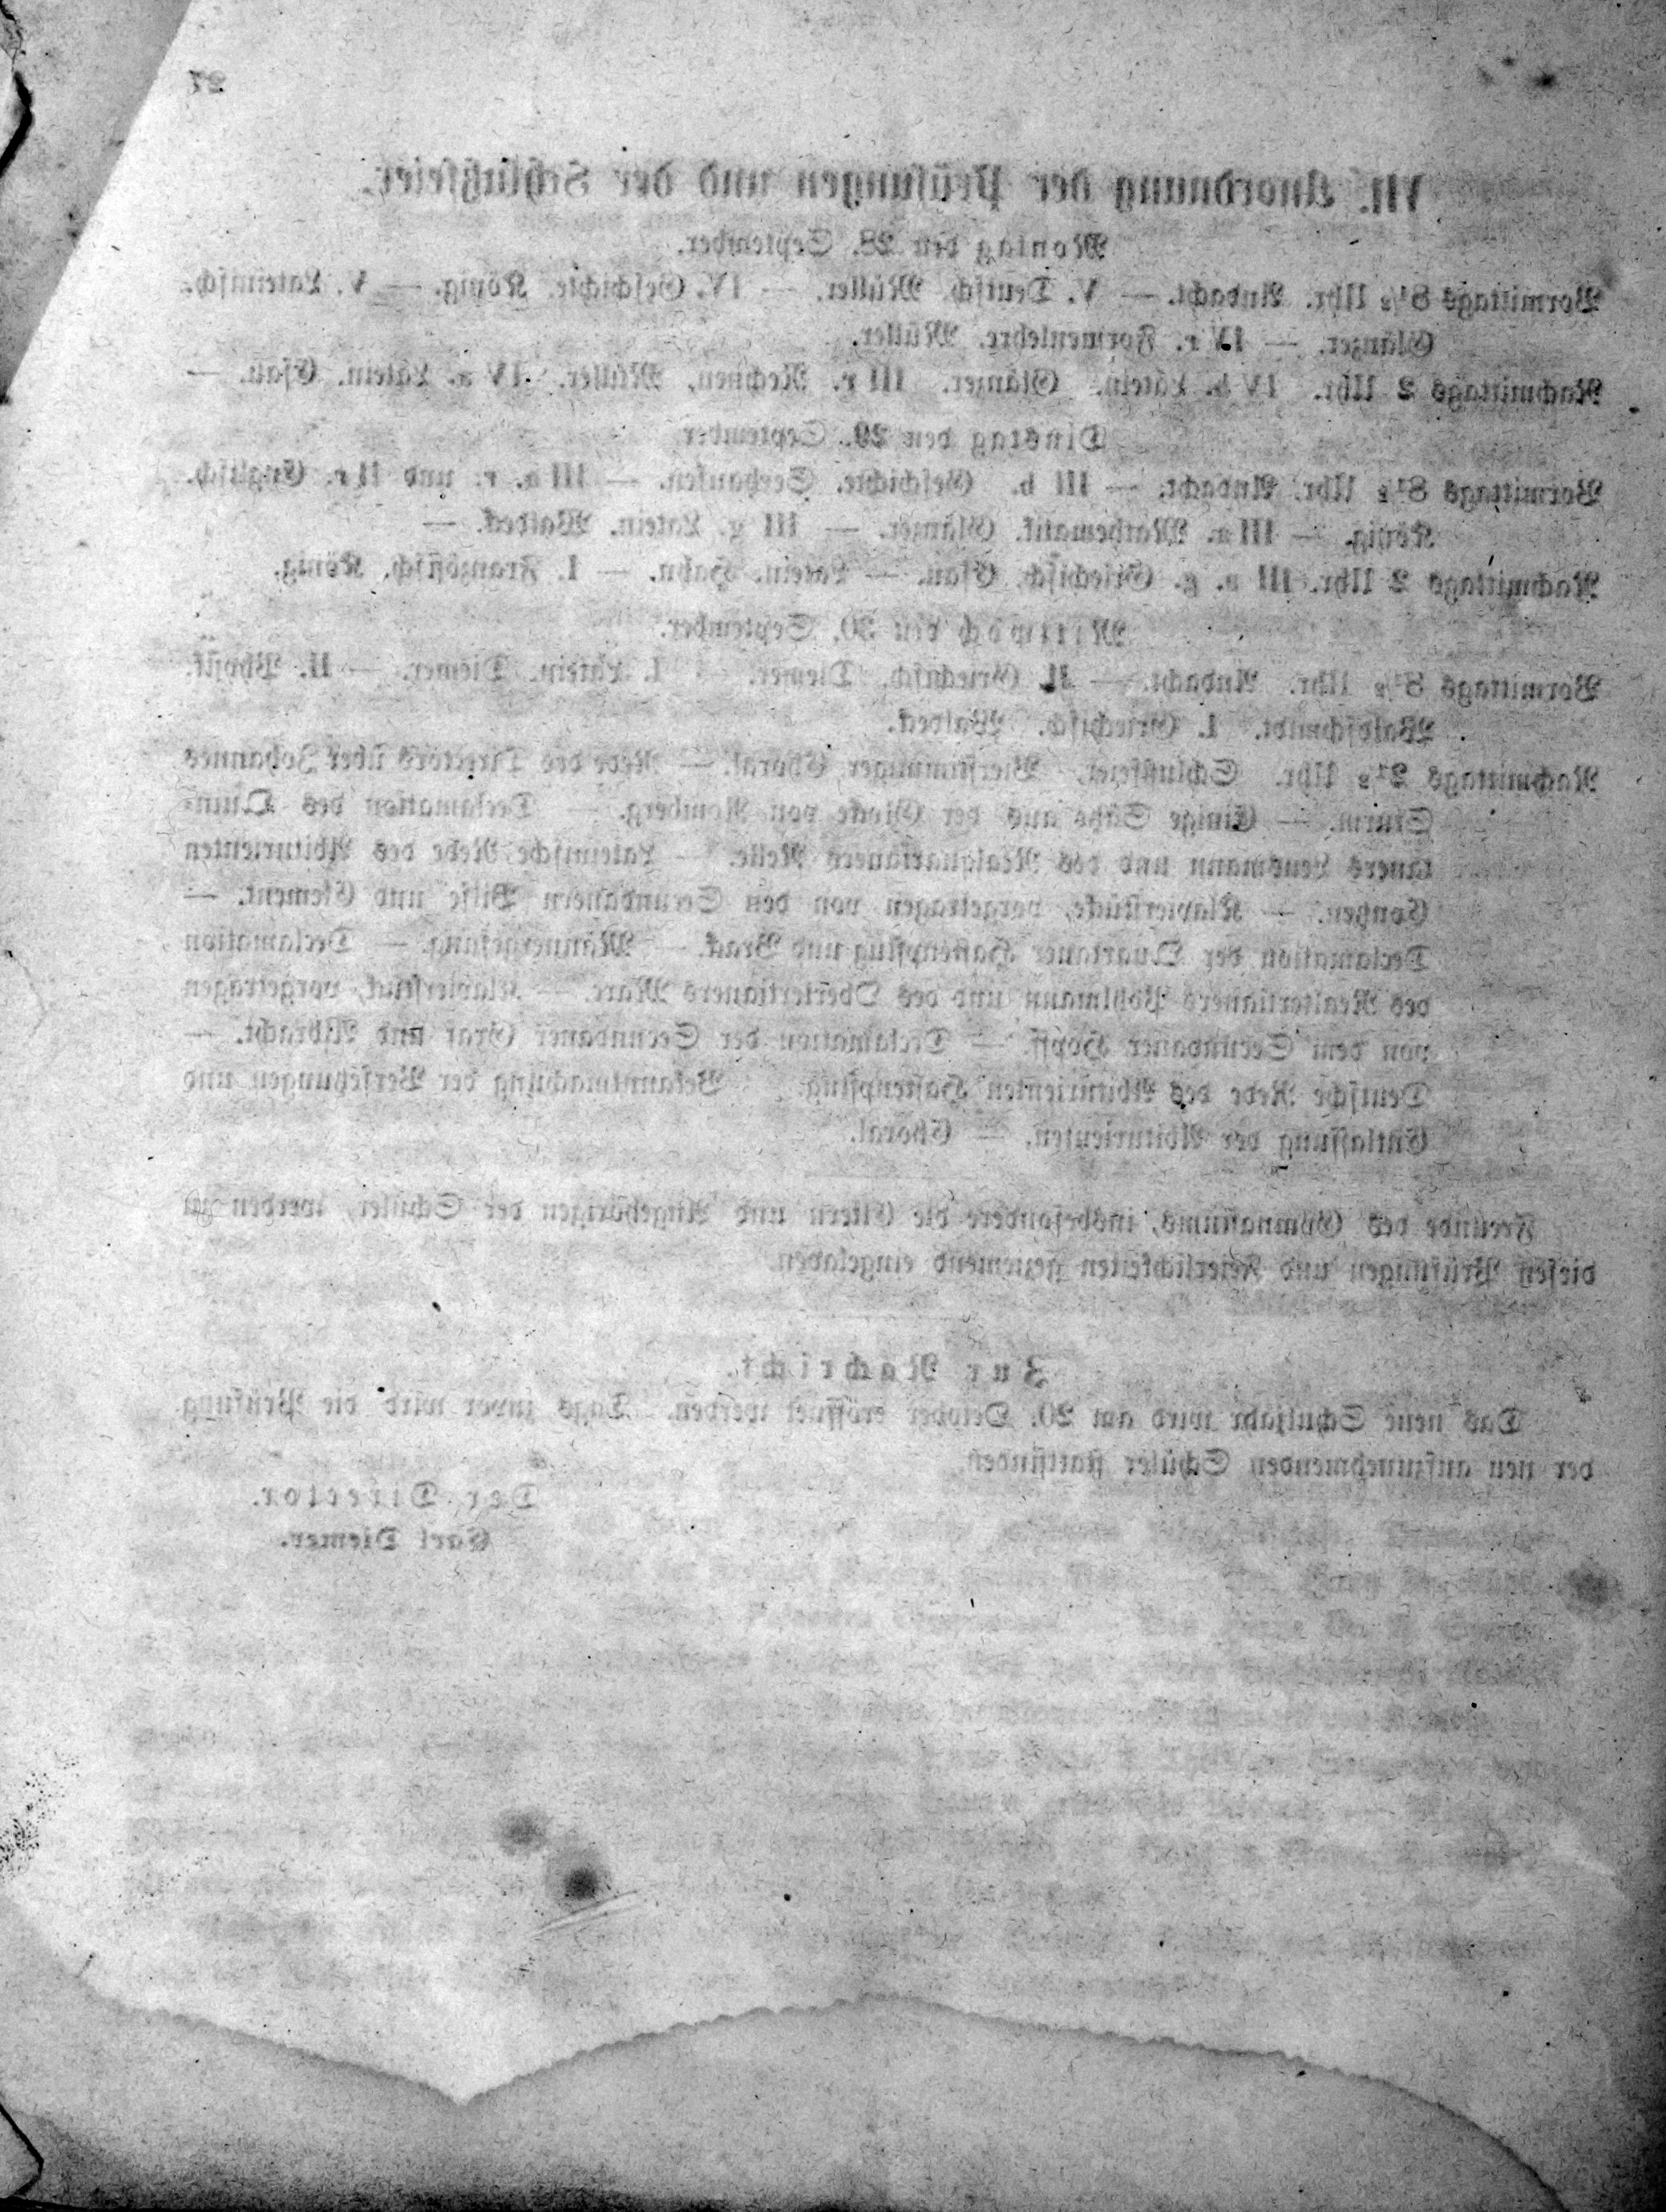 27
VII. Anordnung der Prüfungen und der Schlußfeier.
Montag den 28. September.
Vormittags 8½ Uhr. Andacht. — V. Deutsch. Müller. — IV. Geschichte. König. — V. Lateinisch.
Glänzer. — IV r. Formenlehre. Müller.
Nachmittags 2 Uhr. IV b. Latein. Glänzer. III r. Rechnen. Müller. IV a. Latein. Csau. —
Dinstag den 29. September
Vormittags 8½ Uhr. Andacht. — III b. Geschichte. Seehausen. — III a. r. und II r. Englisch.
König. — III a. Mathemat. Glänzer. — III g. Latein. Waldeck. —
Nachmittags 2 Uhr. III a. g. Griechisch. Csau. — Latein. Hahn. — I. Französisch. König.
Mittwoch den 30. September.
Vormittags 8½ Uhr. Andacht. — II. Griechisch. Diemer. — I. Latein. Diemer. — II. Physik.
Waldschmidt. I. Griechisch. Waldeck.
Nachmittags 2½ Uhr. Schlußfeier. Vierstimmiger Choral. — Rede des Directors über Johannes
Sturm. — Einige Sätze aus der Glocke von Romberg. — Declamation des Quin-
taners Leusmann und des Realquartaners Nelle. — Lateinische Rede des Abiturienten
— Klavierstücke, vorgetragen von den Secundanern Bilse und Clement. —
Declamation der Quartaner Hastenpflug und Brack. — Männergesang. — Declamation
des Realtertianers Pöhlmann und des Obertertianers Marc. — Klavierstück, vorgetragen
von dem Secundaner Höpff. — Declamation der Secundaner Graf und Albracht. —
Deutsche Rede des Abiturienten Hastenpflug. Bekanntmachung der Versetzungen und
Entlassung der Abiturienten. — Choral.
Freunde des Gymnasiums, insbesondere die Eltern und Angehörigen der Schüler, werden zu
diesen Prüfungen und Feierlichkeiten geziemend eingeladen.
Zur Nachricht.
Das neue Schuljahr wird am 20. October eröffnet werden. Tags zuvor wird die Prüfung
der neu aufzunehmenden Schüler stattfinden.
Der Director.
Carl Diemer.